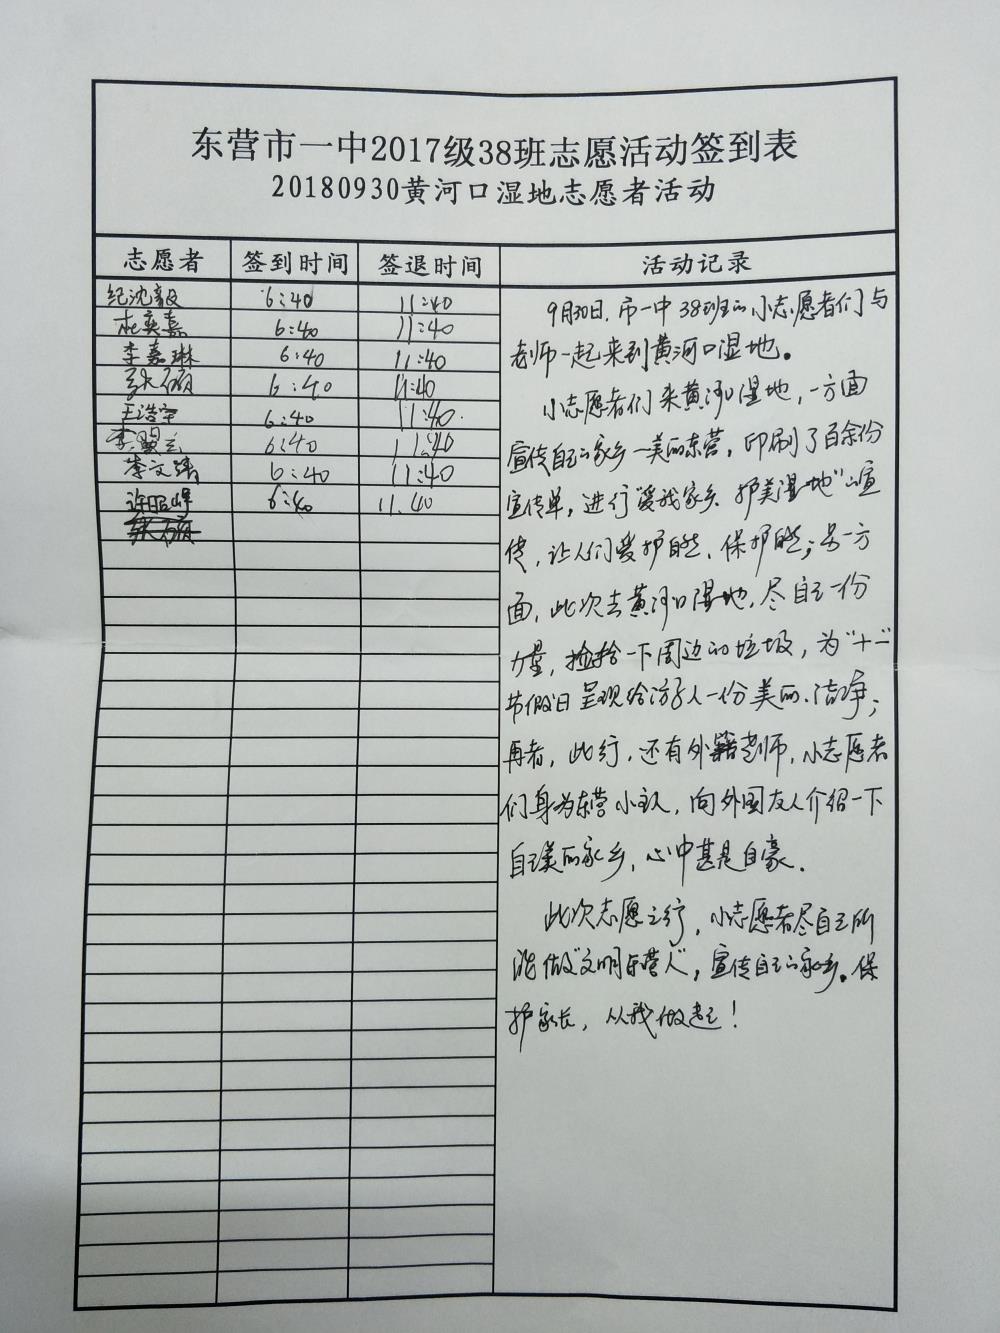 东营市一中2017级38班志愿活动签到表
20180930黄河口湿地志愿者活动
志愿者 签到时间 签退时间 活动记录
纪沈毅 6:40 11:40
杜奕嘉 6:40 11:40
李嘉琳 6:40 11:40
张硕 6:40 11:40
王浩宇 6:40 11:40
李 6:40 11:40
李文靖 6:40 11:40
许昭峰 6:40 11.40
张硕
9月30日,市一中38班的小志愿者们与
老师一起来到黄河口湿地。
小志愿者们来黄河口湿地,一方面
宣传自己的家乡—美丽东营,印刷了百余份
宣传单,进行“爱我家乡、护美湿地”的宣
传,让人们爱护自然、保护自然;另一方
面,此次去黄河口湿地,尽自己一份
力量,捡拾一下周边的垃圾,为“十一”
节假日呈现给游人一份美丽、洁净;
再者,此行,还有外籍老师,小志愿者
们身为东营小主人,向外国友人介绍一下
自己美丽家乡,心中甚是自豪.
此次志愿之行,小志愿者尽自己所
能做“文明东营人”,宣传自己的家乡。保
护家长,从我做起!